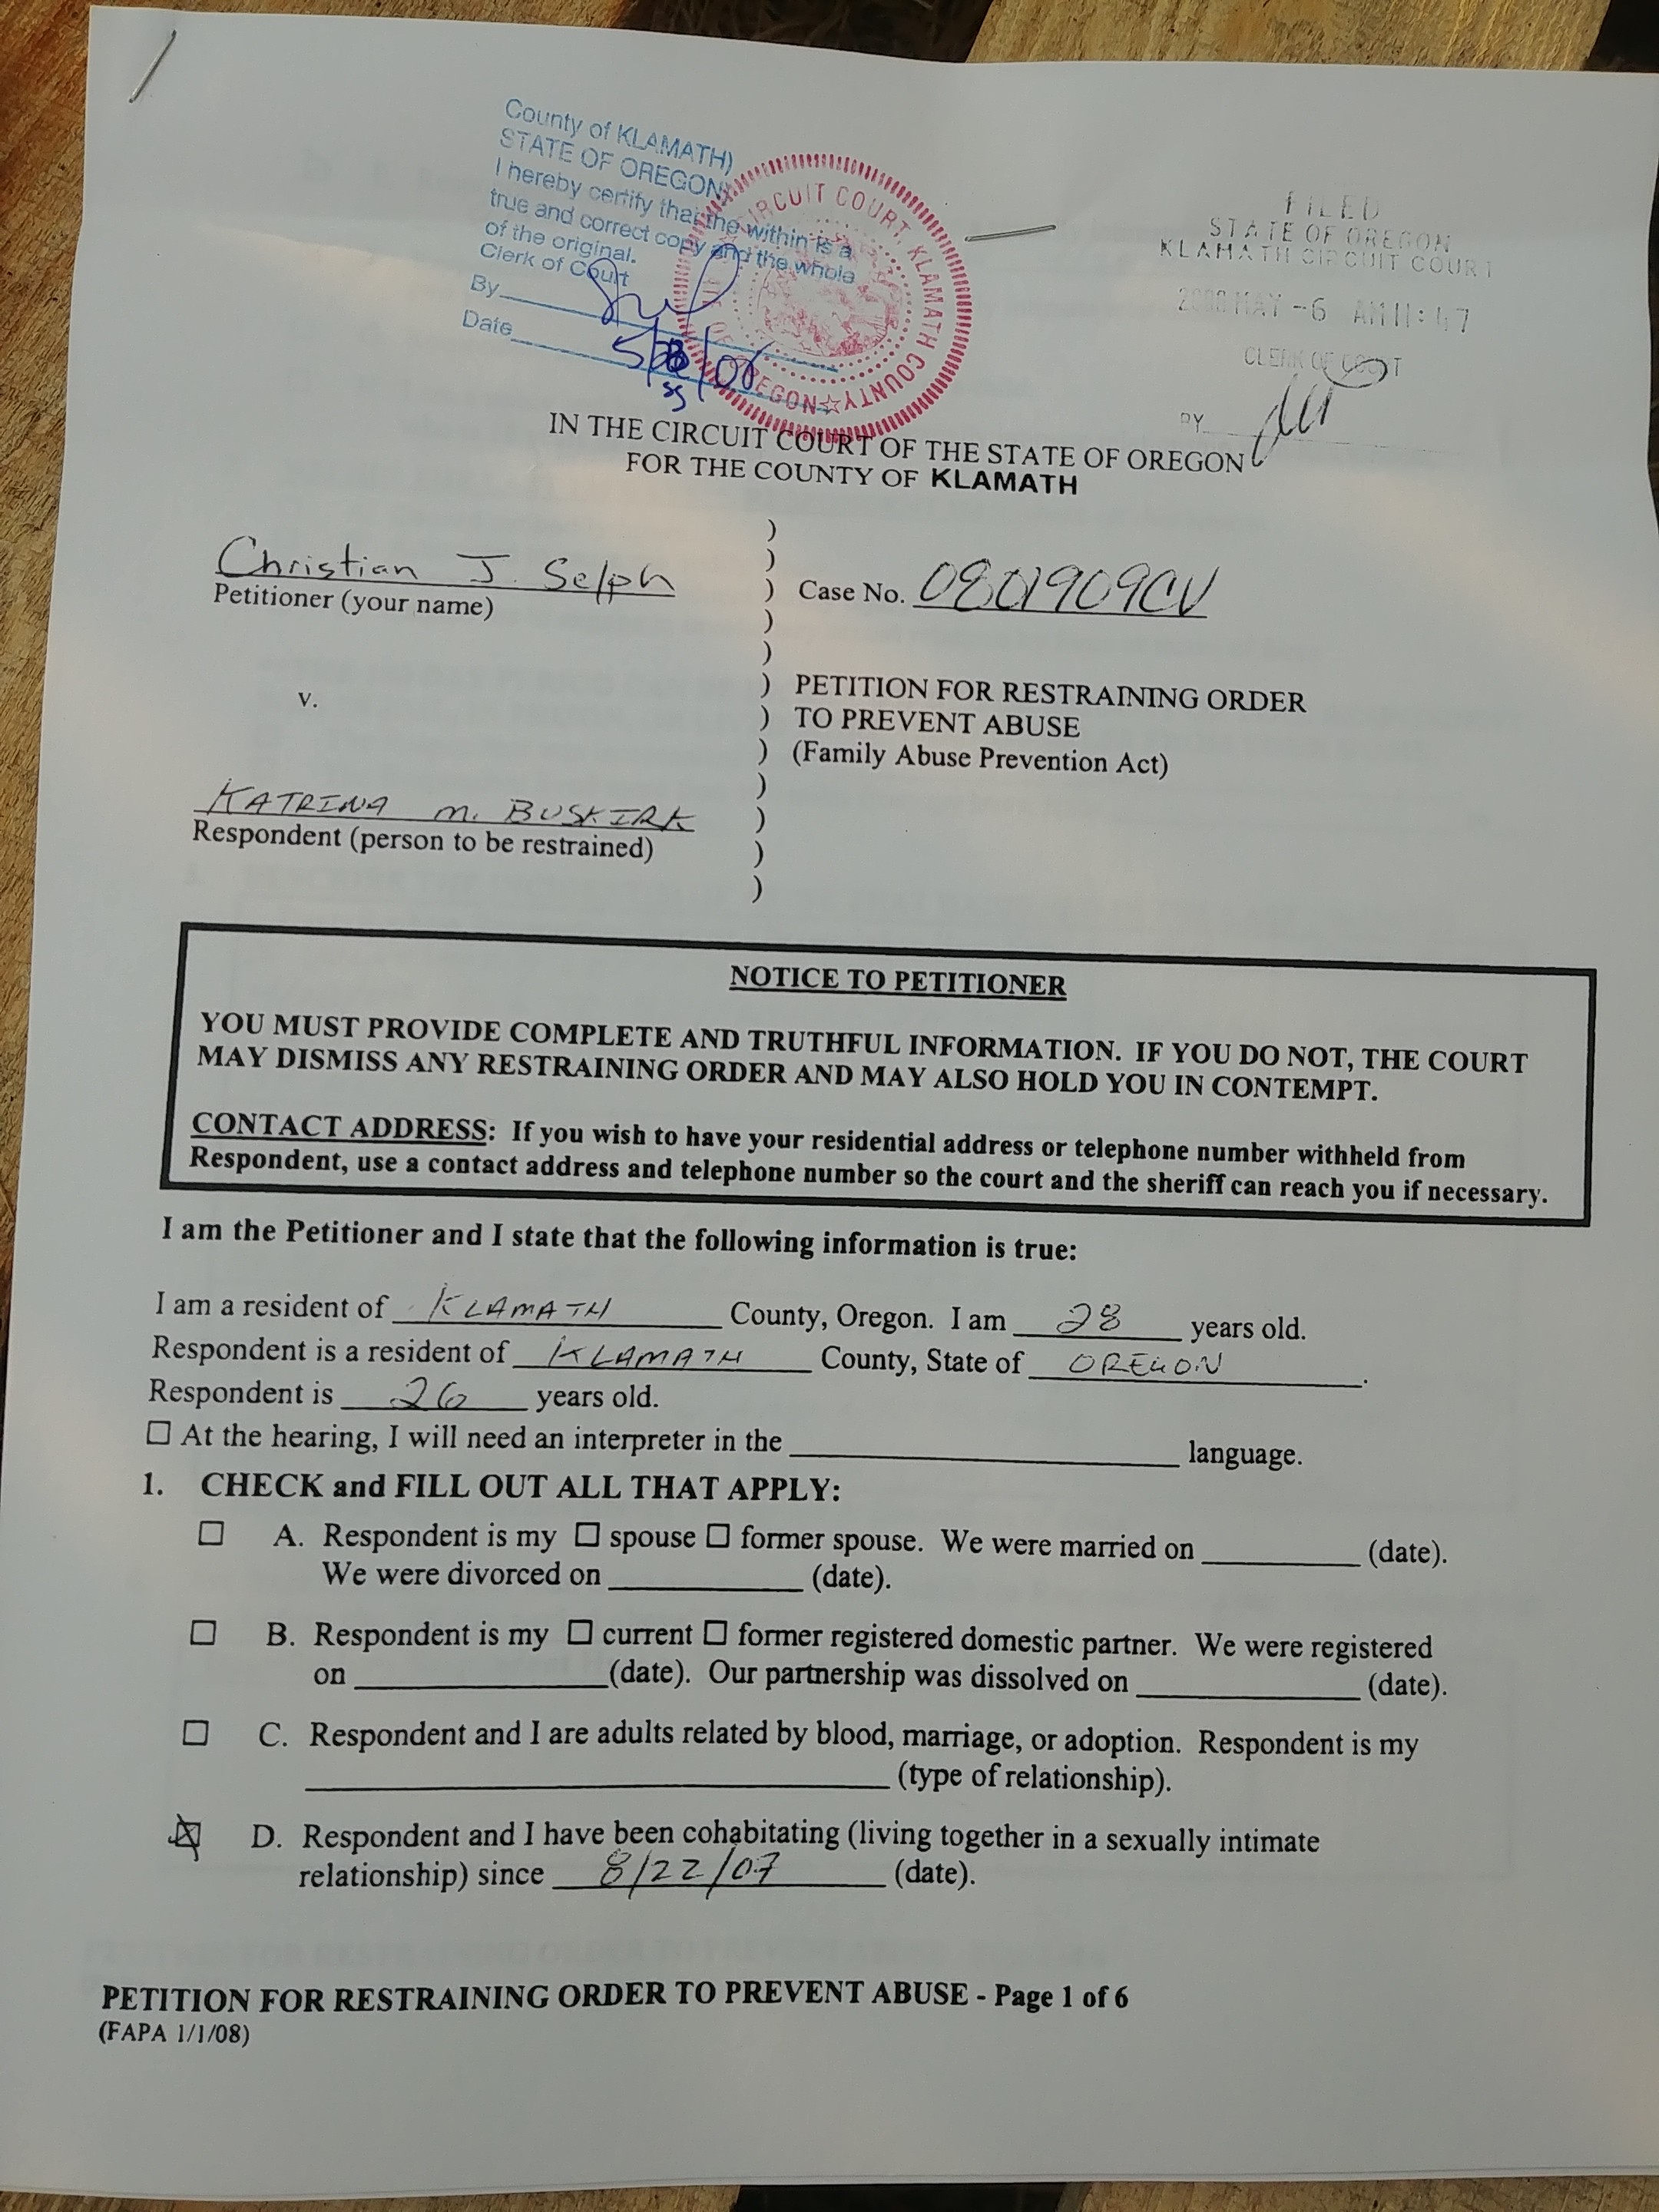 County of KLAMATH)
STATE OF OREGON)
I hereby certify that the within is a
true and correct copy and the whole
of the original.
Clerk of Court
By
Date
CIRCUIT COURT, KLAMATH COUNTY
OF OREGON
FILED
STATE OF OREGON
KLAMATH CIRCUIT COURT
MAY -6 AM 11:
CLERK OF COURT
BY
IN THE CIRCUIT COURT OF THE STATE OF OREGON
FOR THE COUNTY OF KLAMATH
Christian J. Selph
Petitioner (your name)
Case No. 0801909CV
v.
PETITION FOR RESTRAINING ORDER
TO PREVENT ABUSE
(Family Abuse Prevention Act)
KATRINA M. BUSKIRK
Respondent (person to be restrained)
NOTICE TO PETITIONER
YOU MUST PROVIDE COMPLETE AND TRUTHFUL INFORMATION. IF YOU DO NOT, THE COURT
MAY DISMISS ANY RESTRAINING ORDER AND MAY ALSO HOLD YOU IN CONTEMPT.
CONTACT ADDRESS: If you wish to have your residential address or telephone number withheld from
Respondent, use a contact address and telephone number so the court and the sheriff can reach you if necessary.
I am the Petitioner and I state that the following information is true:
I am a resident of KLAMATH County, Oregon. I am 28 years old.
Respondent is a resident of KLAMATH County, State of OREGON.
Respondent is 26 years old.
☐ At the hearing, I will need an interpreter in the ____ language.
1. CHECK and FILL OUT ALL THAT APPLY:
☐ A. Respondent is my ☐ spouse ☐ former spouse. We were married on ____ (date).
We were divorced on ____ (date).
☐ B. Respondent is my ☐ current ☐ former registered domestic partner. We were registered
on ____ (date). Our partnership was dissolved on ____ (date).
☐ C. Respondent and I are adults related by blood, marriage, or adoption. Respondent is my
____ (type of relationship).
☒ D. Respondent and I have been cohabitating (living together in a sexually intimate
relationship) since 8/22/07 (date).
PETITION FOR RESTRAINING ORDER TO PREVENT ABUSE - Page 1 of 6
(FAPA 1/1/08)